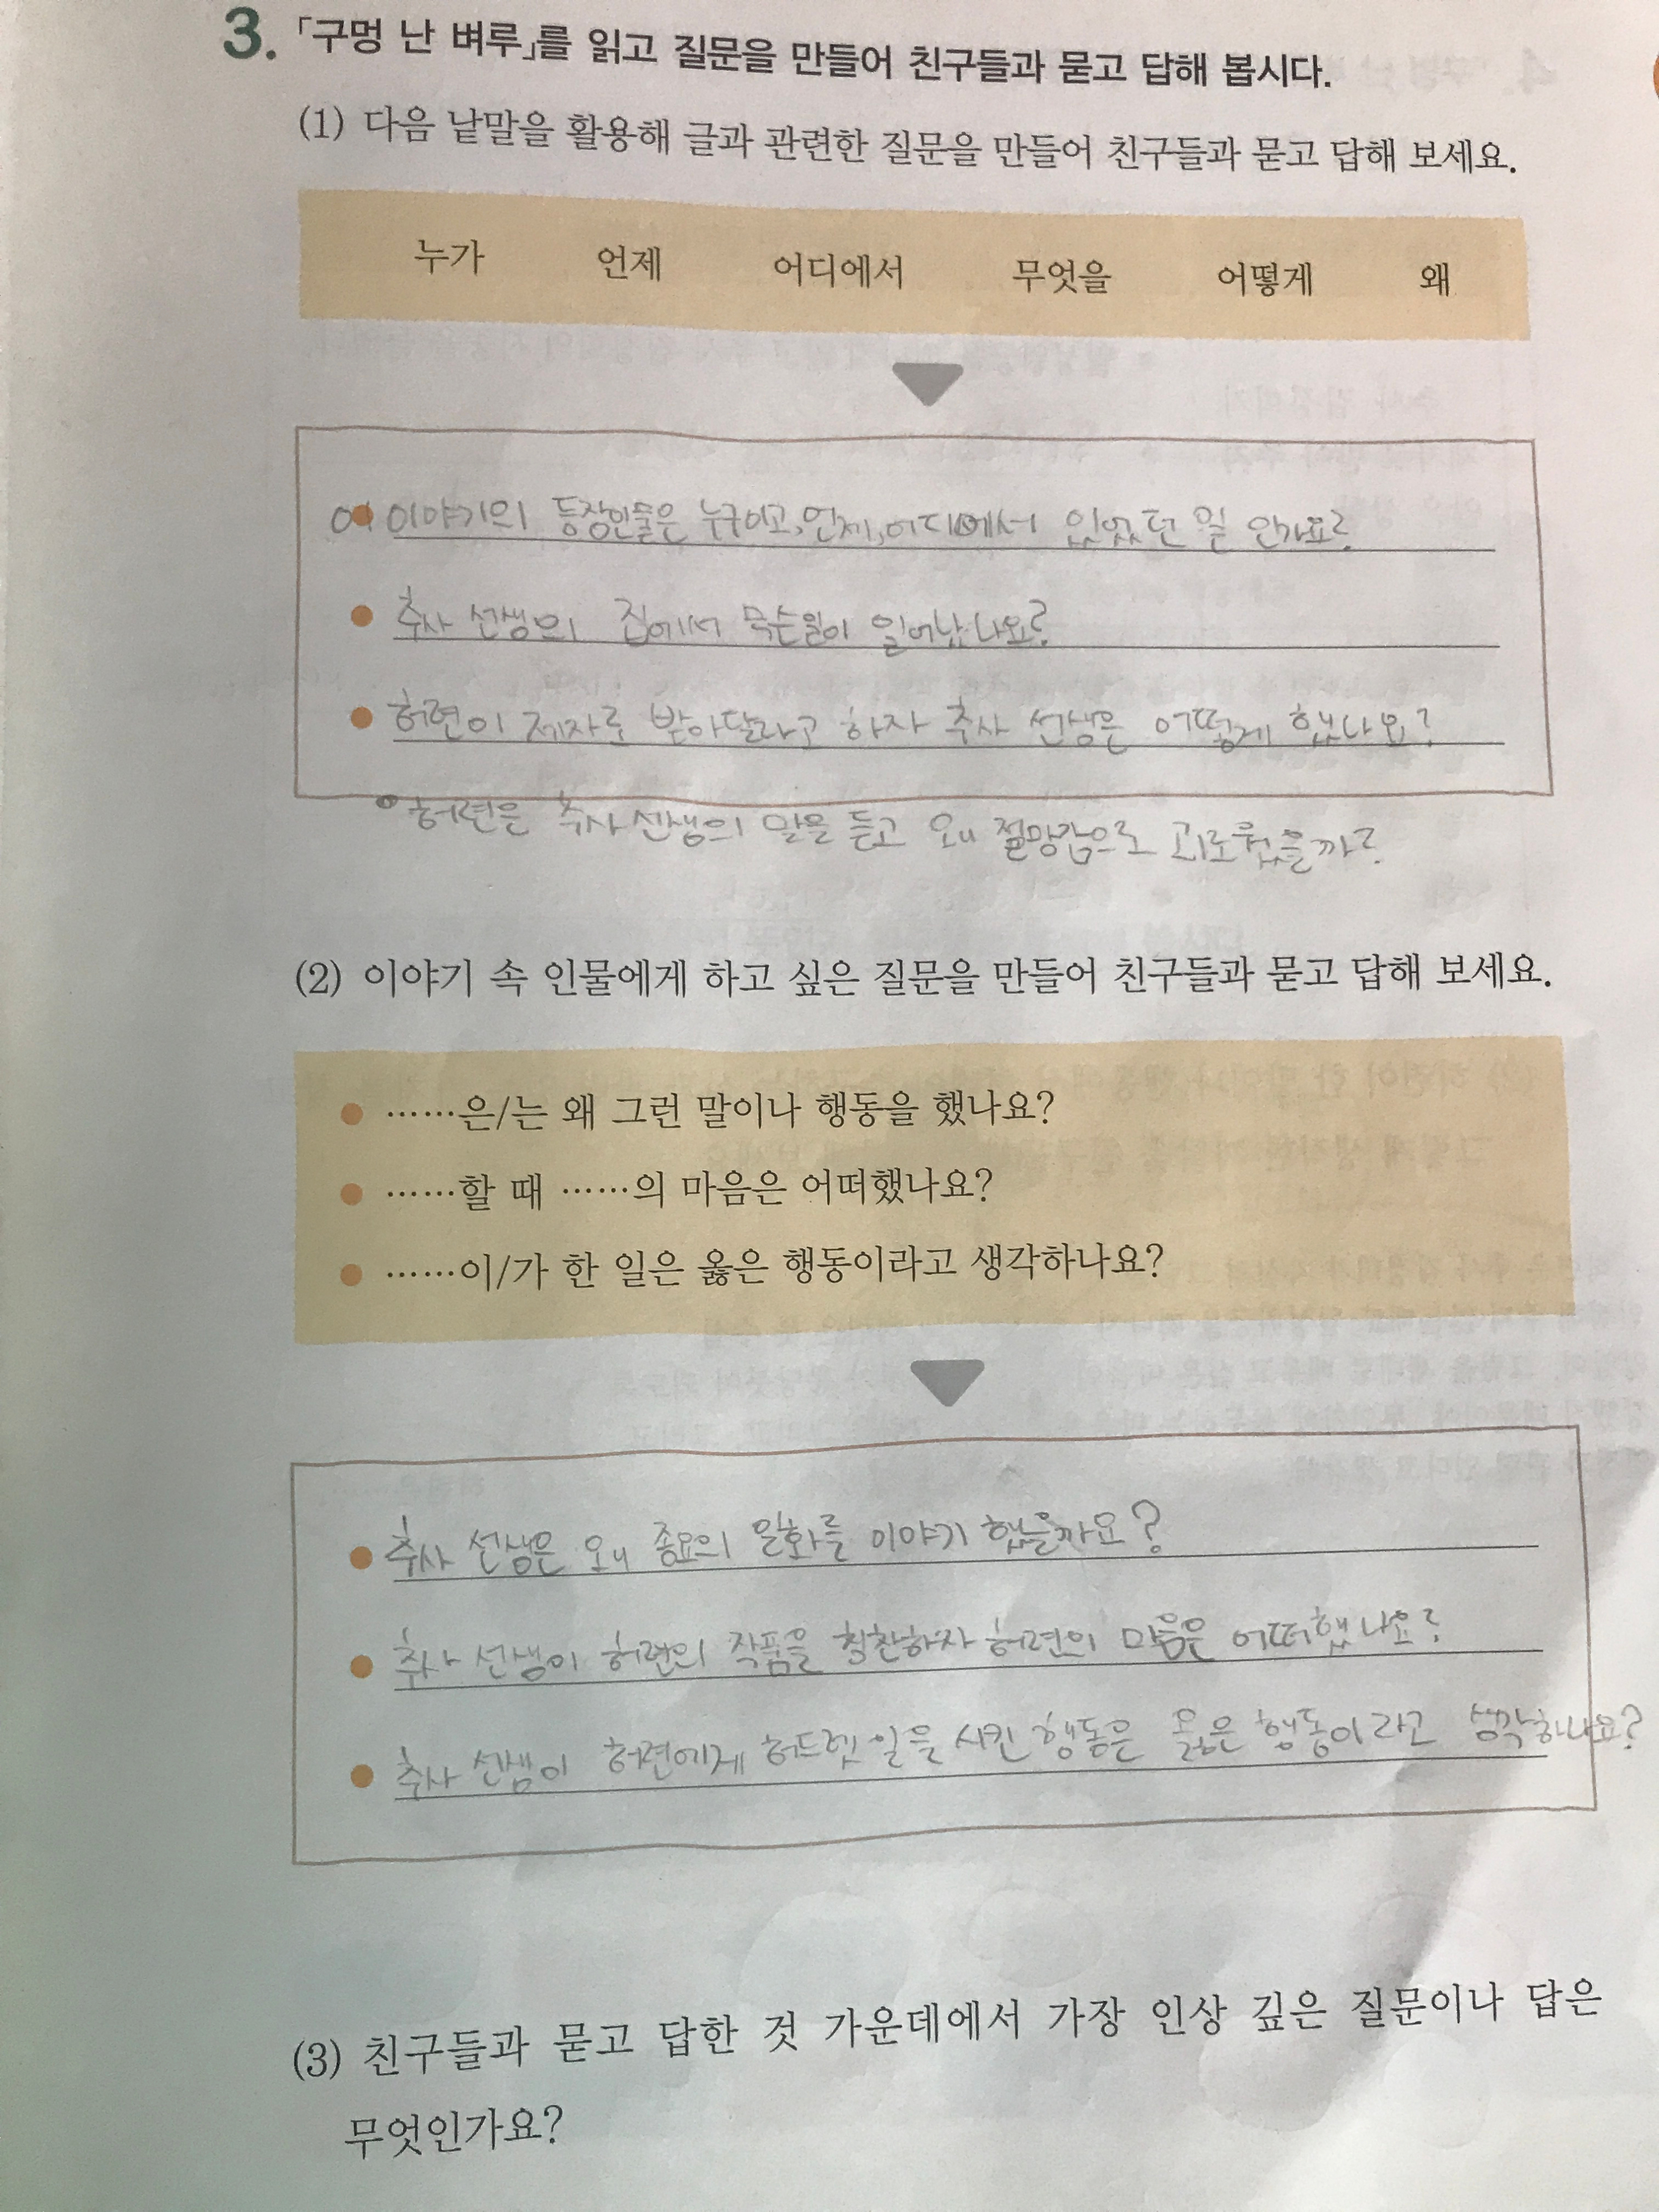 3. 「구멍 난 벼루」를 읽고 질문을 만들어 친구들과 묻고 답해 봅시다.
(1) 다음 낱말을 활용해 글과 관련한 질문을 만들어 친구들과 묻고 답해 보세요.
누가 언제 어디에서 무엇을 어떻게 왜
이 이야기의 등장인물은 누구이고, 언제, 어디에서 있었던 일 인가요?
추사 선생의 집에서 무슨일이 일어났나요?
허련이 제자로 받아달라고 하자 추사 선생은 어떻게 했나요?
허련은 추사 선생의 말을 듣고 왜 절망감으로 괴로웠을까?
(2) 이야기 속 인물에게 하고 싶은 질문을 만들어 친구들과 묻고 답해 보세요.
● ……은/는 왜 그런 말이나 행동을 했나요?
● ……할 때 ……의 마음은 어떠했나요?
● ……이/가 한 일은 옳은 행동이라고 생각하나요?
● 추사 선생은 왜 종요의 일화를 이야기 했을까요?
● 추사 선생이 허련의 작품을 칭찬하자 허련의 마음은 어떠했나요?
● 추사 선생이 허련에게 허드렛일을 시킨 행동은 옳은 행동이라고 생각하나요?
(3) 친구들과 묻고 답한 것 가운데에서 가장 인상 깊은 질문이나 답은
무엇인가요?